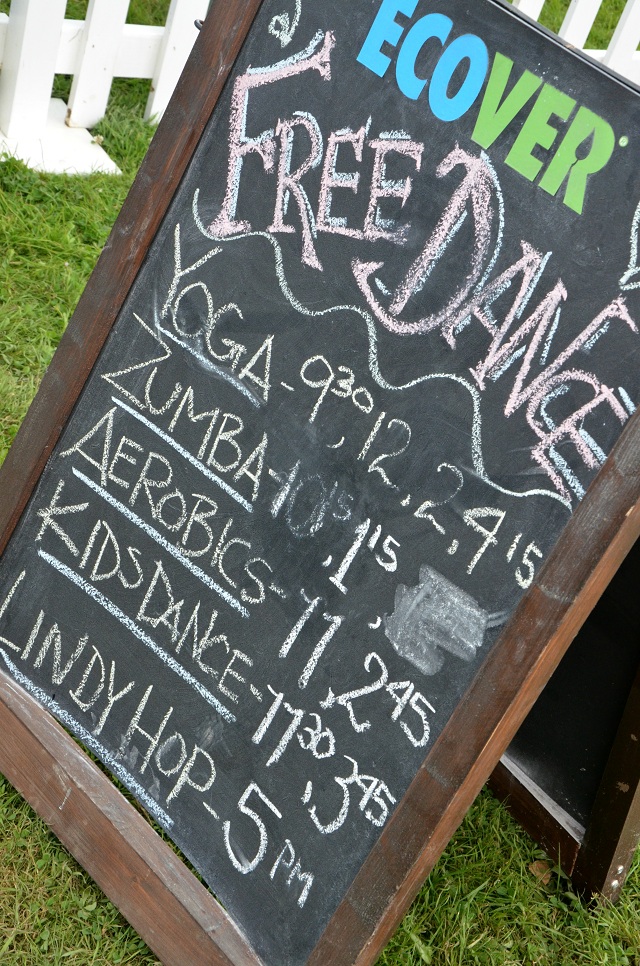 ECOVER
FREE DANCE
YOGA - 9³⁰, 12, 2, 4¹⁵
ZUMBA - 10¹⁵, 1¹⁵
AEROBICS - 11, 2⁴⁵
KIDS DANCE - 11³⁰, 3⁴⁵
LINDY HOP - 5PM